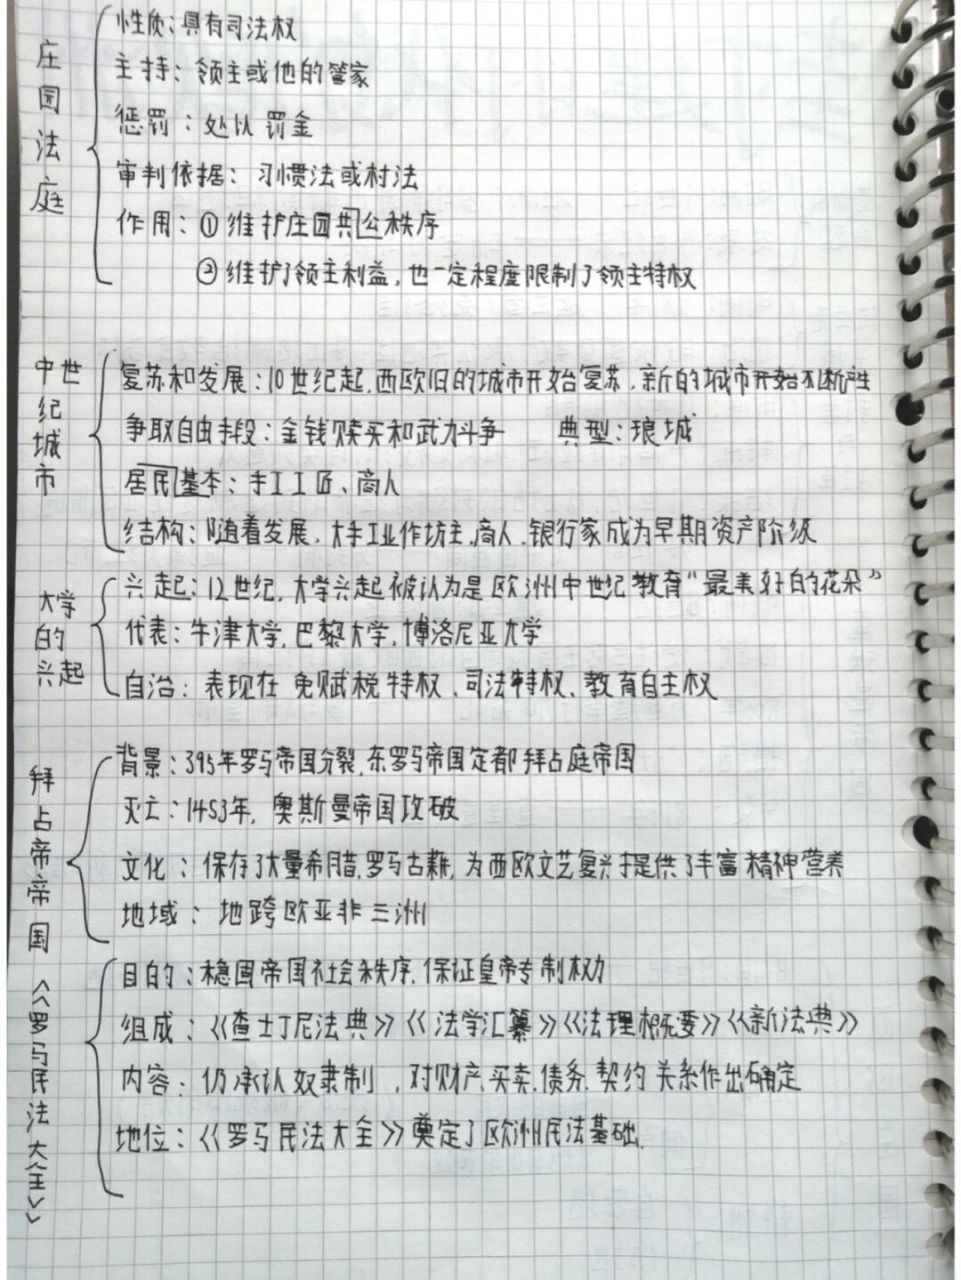 庄园法庭
性质：具有司法权
主持：领主或他的管家
惩罚：处以罚金
审判依据：习惯法或村法
作用：①维护庄园共公秩序
②维护了领主利益，也一定程度限制了领主特权
中世纪城市
复苏和发展：10世纪起，西欧旧的城市开始复苏，新的城市开始不断产生
争取自由手段：金钱赎买和武力斗争 典型：琅城
居民基本：手工工匠、商人
结构：随着发展，大手工业作坊主，商人，银行家成为早期资产阶级
大学的兴起
兴起：12世纪，大学兴起被认为是欧洲中世纪教育“最美好的花朵”
代表：牛津大学，巴黎大学，博洛尼亚大学
自治：表现在免赋税特权、司法特权、教育自主权
拜占帝帝国
背景：395年罗马帝国分裂，东罗马帝国定都拜占庭帝国
灭亡：1453年，奥斯曼帝国攻破
文化：保存了大量希腊，罗马古籍，为西欧文艺复兴提供了丰富精神营养
地域：地跨欧亚非三洲
《罗马民法大全》
目的：稳固帝国社会秩序，保证皇帝专制权力
组成：《查士丁尼法典》《法学汇纂》《法理概要》《新法典》
内容：仍承认奴隶制，对财产，买卖，债务，契约关系作出确定
地位：《罗马民法大全》奠定了欧洲民法基础.